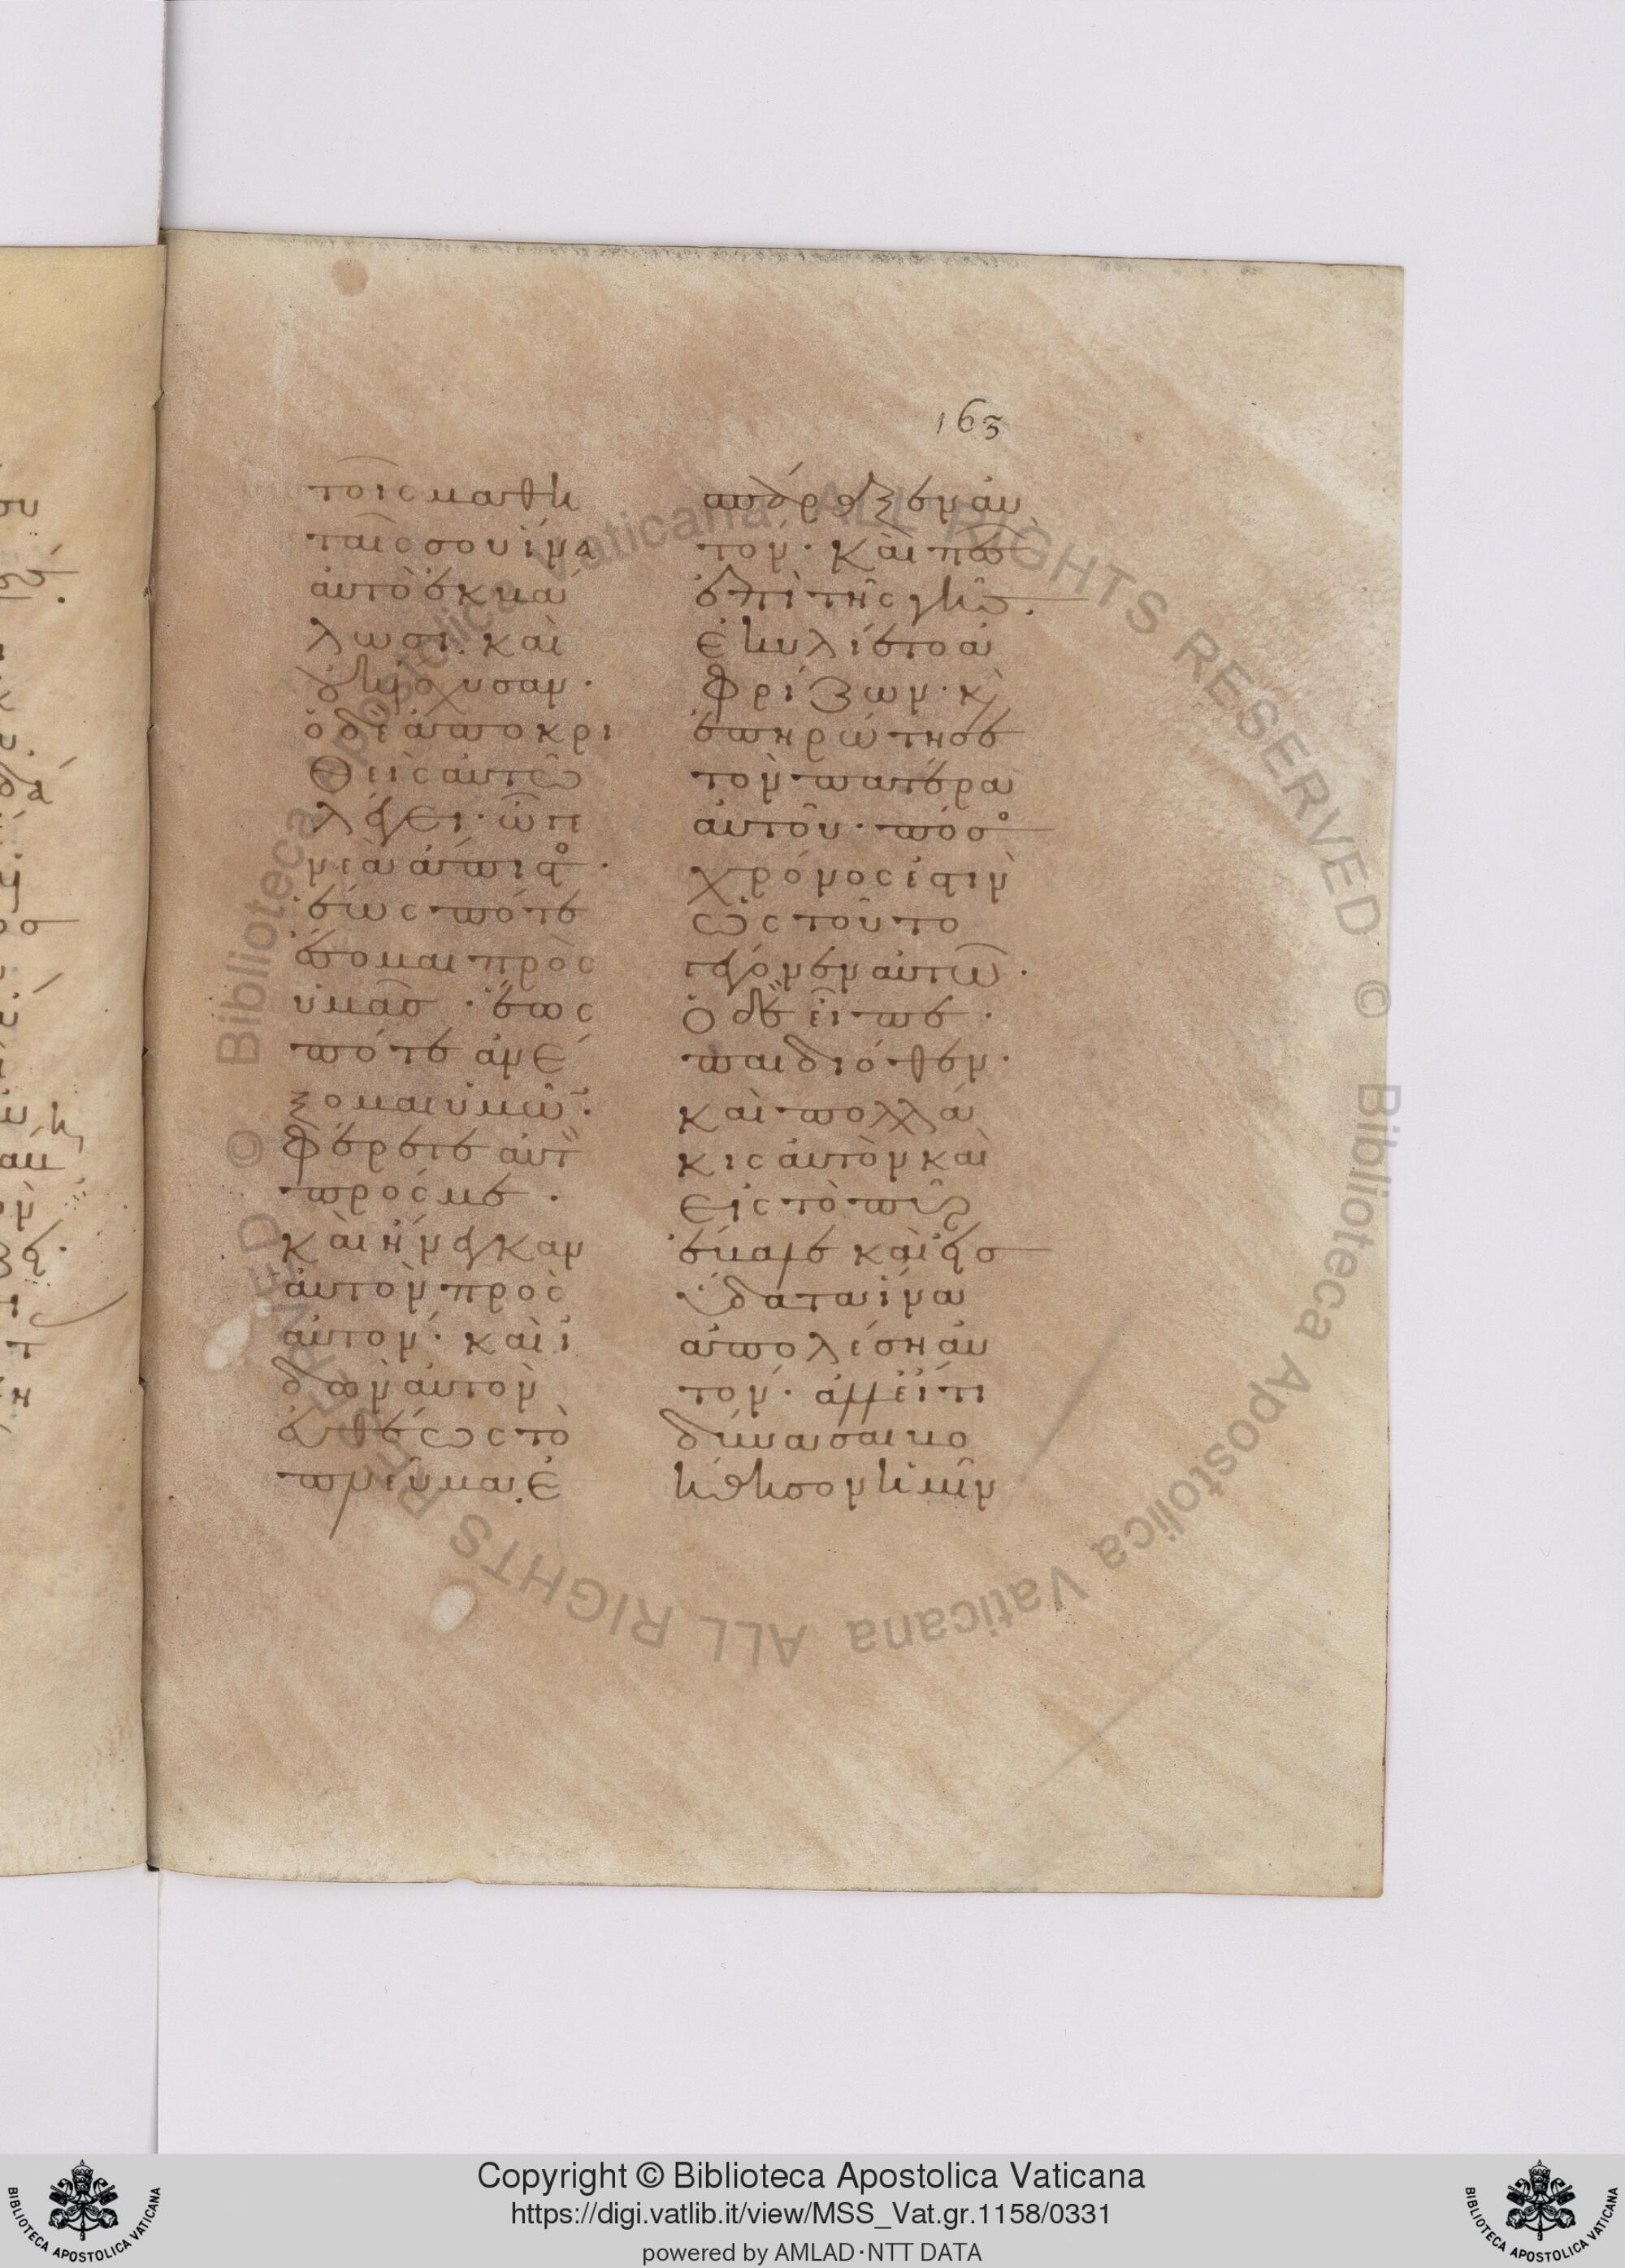 163
τοῖς μαθη
ταῖς σου ἵνα
αὐτὸ ἐκβά
λωσι. καὶ
οὐκ ἴσχυσαν·
ὁ δὲ ἀποκρι
θεὶς αὐτῶ
λέγει· ὦ γε
νεὰ ἄπιστος·
ἕως πότε
ἔσομαι πρὸς
ὑμᾶς· ἕως
πότε ἀνέ
ξομαι ὑμῶν·
φέρετε αὐτὸν
πρός με·
καὶ ἤνεγκαν
αὐτὸν πρὸς
αὐτόν· καὶ ἰ
δὼν αὐτὸν
εὐθέως τὸ
πνεῦμα ἐ
σπάραξεν αὐ
τόν· καὶ πεσὼν
ἐπὶ τῆς γῆς·
ἐκυλίετο ἀ
φρίζων· καὶ
ἐπηρώτησε
τὸν πατέρα
αὐτοῦ· πόσος
χρόνος ἐστὶν
ὡς τοῦτο
γέγονεν αὐτῶ·
ὁ δὲ εἶπε·
παιδιόθεν·
καὶ πολλά
κις αὐτὸν καὶ
εἰς τὸ πῦρ
ἔβαλε καὶ εἰς
ὕδατα ἵνα
ἀπολέση αὐ
τόν· ἀλλ εἴ τι
δύνασαι βο
ήθησον ἡμῖν
Copyright © Biblioteca Apostolica Vaticana
https://digi.vatlib.it/view/MSS_Vat.gr.1158/0331
powered by AMLAD·NTT DATA
BIBLIOTECA APOSTOLICA VATICANA
BIBLIOTECA APOSTOLICA VATICANA
© Biblioteca Apostolica Vaticana ALL RIGHTS RESERVED
© Biblioteca Apostolica Vaticana ALL RIGHTS RESERVED